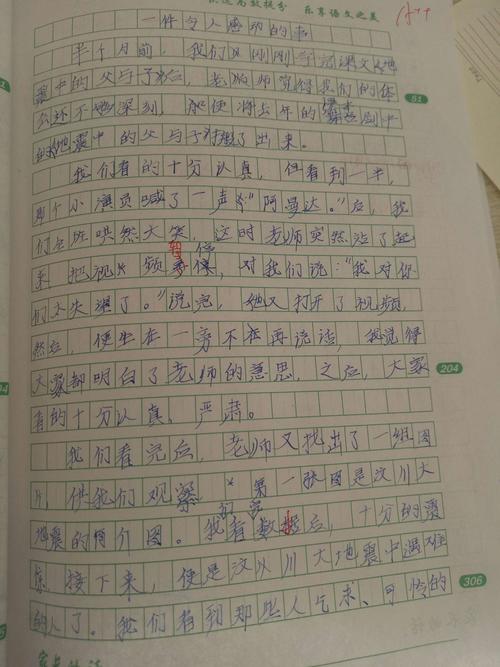 乐享语文之美
一件令人感动的事
半个月前,我们刚刚学过课文《地
震中的父与子》后,老师觉得我们的体
会还不够深刻,便将去年的
地震中的父与子找了出来。
我们看的十分认真,但看到一半,
那个小演员喊了一声:“阿曼达。”后,我
们全班哄然大笑,这时老师突然站了起
来,把视频暂停,对我们说:“我对你
们太失望了。”说完,她又打开了视频,
然后,便坐在一旁不在再说话,我觉得
大家都明白了老师的意思,之后,大家
看的十分认真、严肃。
我们看完后,老师又找出了一组图
片,供我们观察。第一张图是汶川大
地震的简介图。我们看完数据后,十分的震
惊,接下来,便是汶川大地震中遇难
的人了。我们看到那些人乞求、可怜的
51
204
306